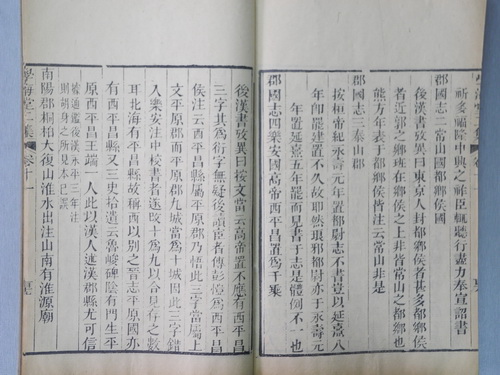 祈多福隆中興之祚臣輒聽行盡力奉宣詔書
郡國志二常山國都鄉侯國
後漢書攷異曰東京人封都鄉侯者甚多都鄉侯
者近郭之鄉班在鄉侯之上非皆常山之都鄉也
熊方年表于都鄉侯皆注云常山非是
郡國志三泰山郡
按桓帝紀永壽元年置都尉志不書豈以延熹八
年即罷建置不久故耶然琅邪都尉亦于永壽元
年置延熹五年罷而見書于志是體例不一也
郡國志四樂安國高帝西平昌置爲千乘
後漢書攷異曰按文當云高帝置不應有西平昌
三字其爲衍字無疑後讀臣者傳彭愷爲西平昌
侯注云西平昌縣屬平原郡乃悟此三字當屬上
文平原郡而平原郡九城當爲十城因此三字
入樂安注中校書者遂改十爲九以合見存之數
耳北海有平昌縣故稱西以別之晉志平原國亦
有西平昌縣又三史拾遺云魯峻碑陰有門生平
原西平昌王端一人此以漢人述漢郡縣尤可信
鑑後漢永平三年注
則胡身之所見本已誤
南陽郡桐柏大復山淮水出注山南有淮源廟
學海堂二集 卷十一